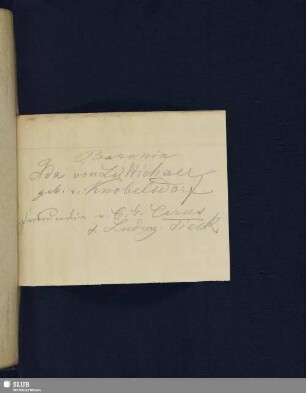 Baronin
Ida von Lüttichau
geb. v. Knobelsdorf
Freundin v. C. G. Carus
& Ludwig Tieck
SLUB